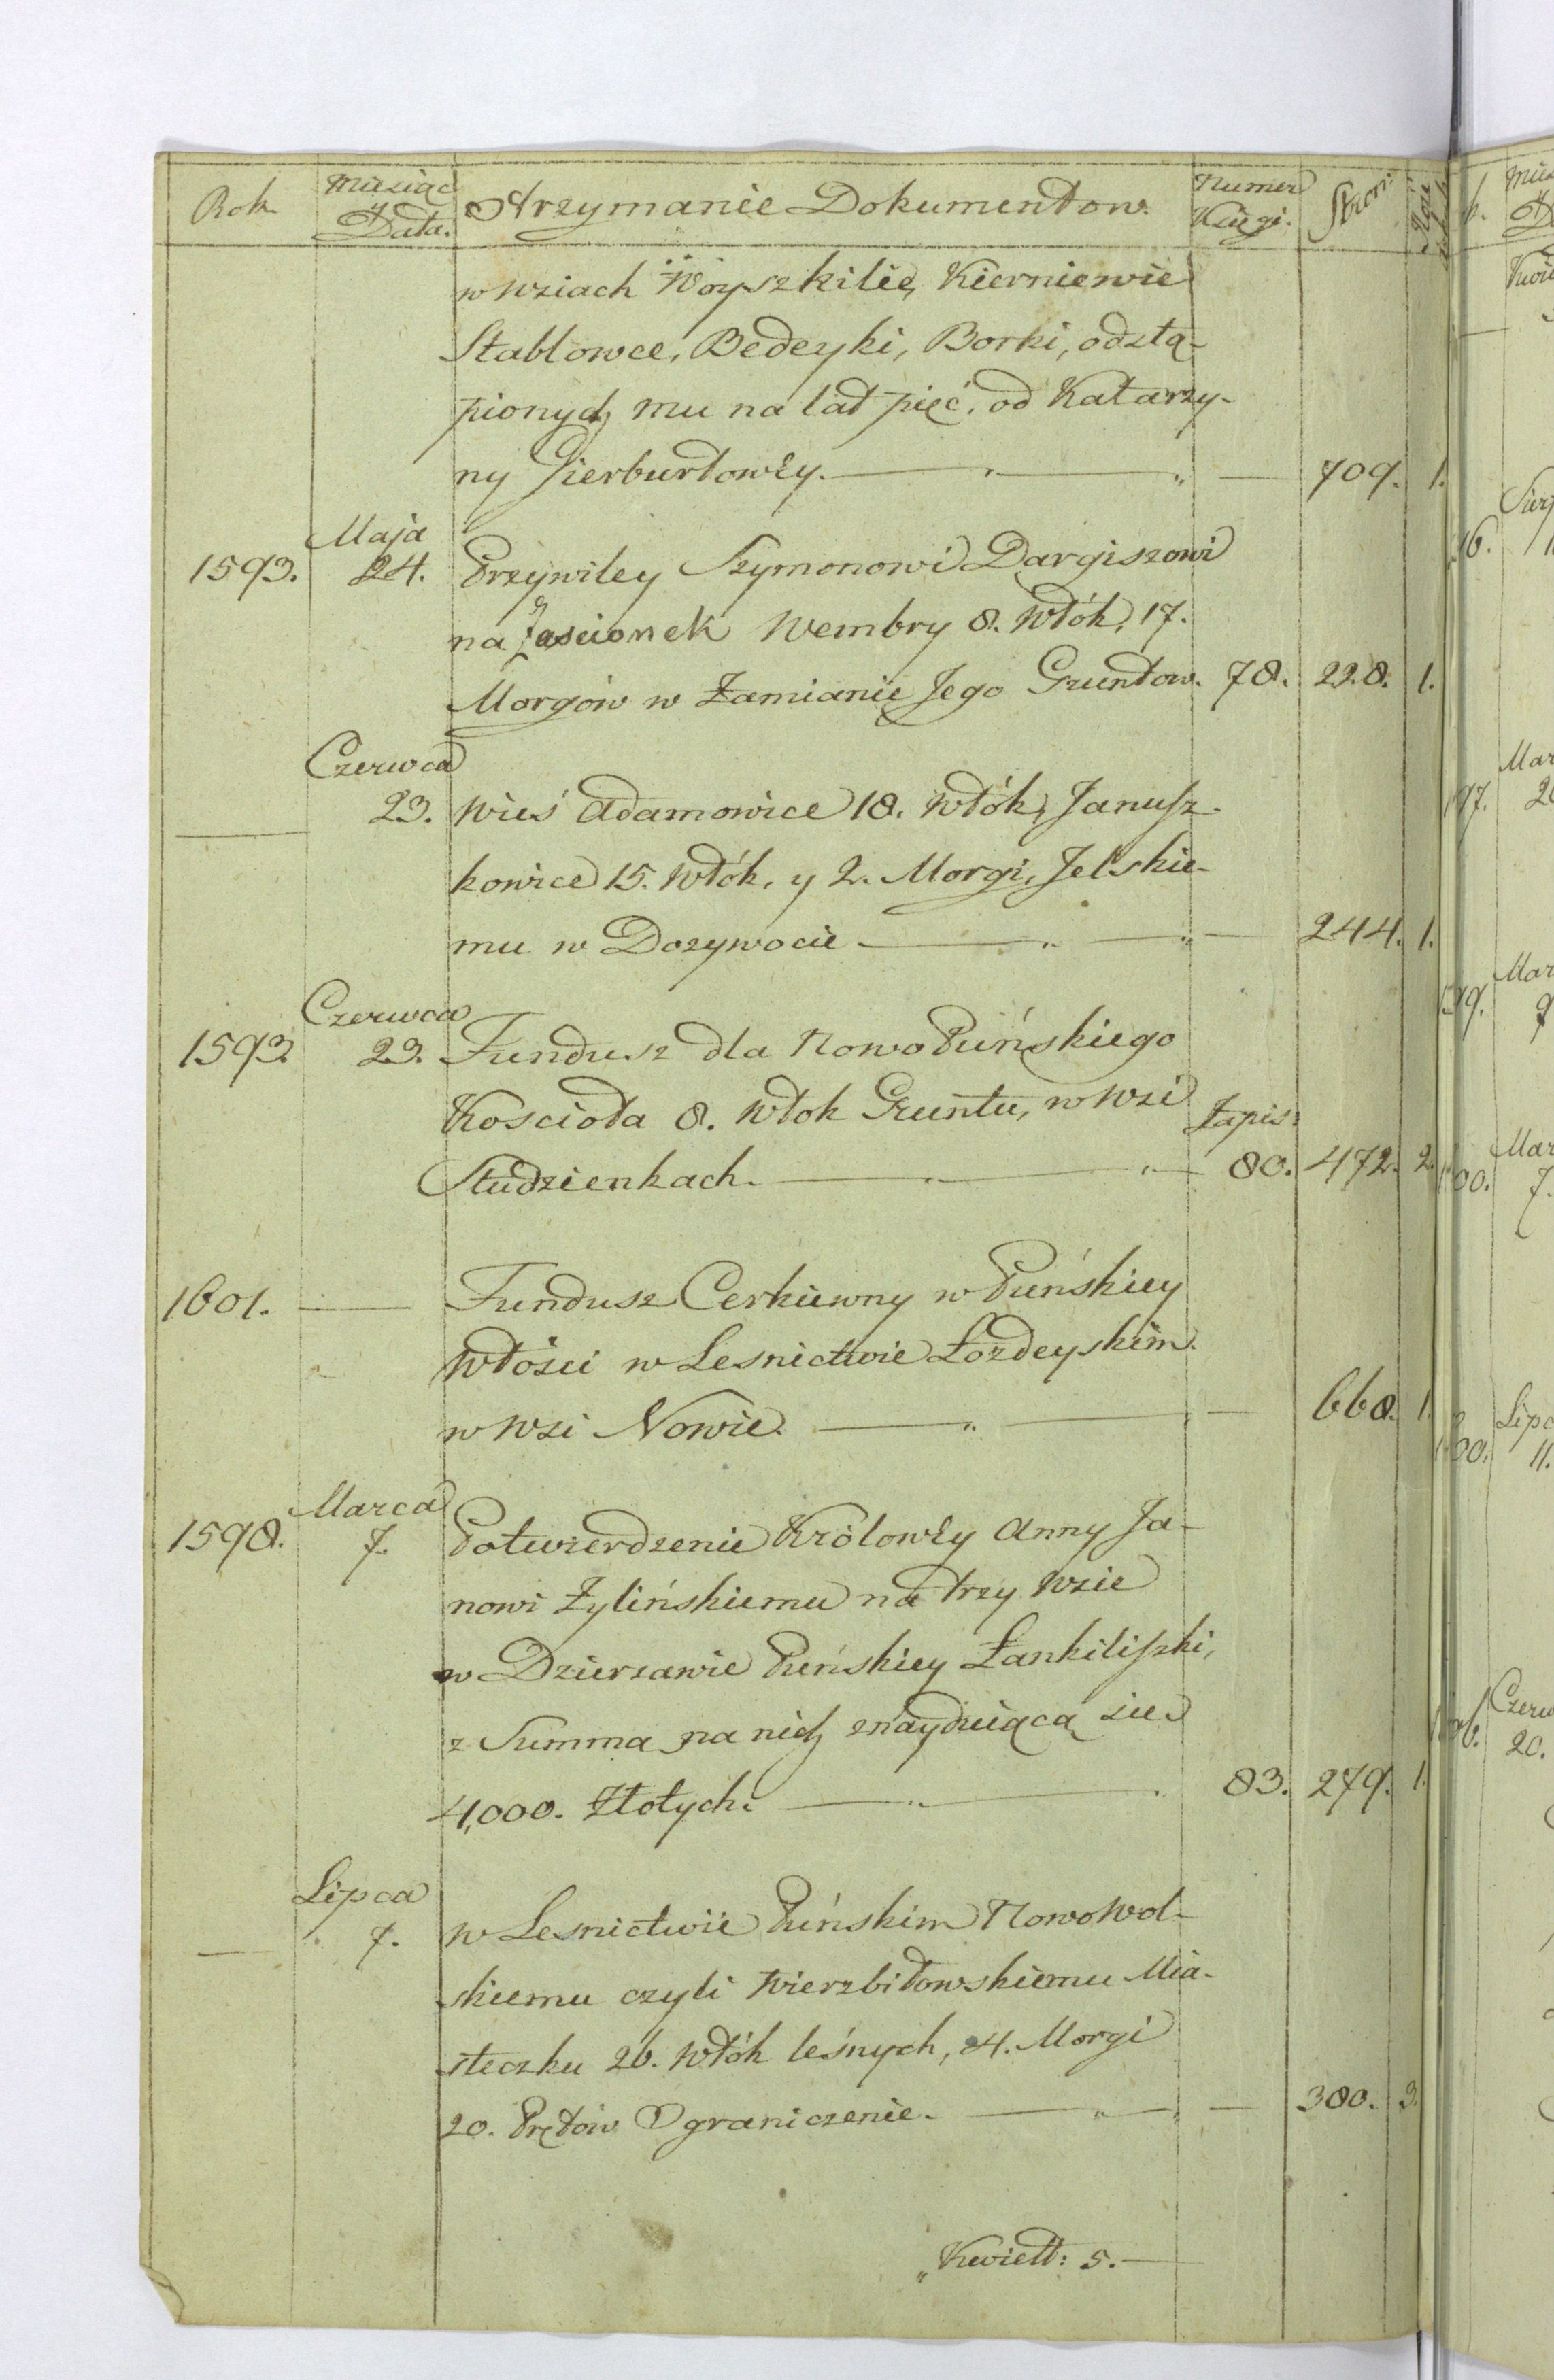 Rok Miesiąc y Data. Otrzymanie Dokumentow. Numer Księgi. Stron:
w wsiach Woyszkilie, Kierniewie
Stablowce, Bedeyki, Borki, odstą-
pionych mu na lat pięć, od Katarzy-
ny Gierburtowły. — „ — „ — 709. 1.
1593. Maja 24. Przywiley Szymonowi Dargiszowi
na Zascionek Wembry 8. Włók, 17.
Morgów w Zamianie Jego Gruntow. 78. 228. 1.
— Czerwca 23. Wieś Adamowice 18. Włók, Janusz-
kowice 15. Włók, y 2. Morgi, Jelskie-
mu w Dozywocie — „ — „ — 244. 1.
1593 Czerwca 23. Fundusz dla NowoPuńskiego
Koscioła 8. Włok Gruntu, w Wsi
Studzienkach. — „ — „ — Zapis: 80. 472. 2.
1601. — Fundusz Cerkiewny w Puńskiey
Włości w Lesnictwie Łozdeyskim
w Wsi Nowie. — „ — 668. 1.
1598. Marca 7. Potwierdzenie Królowły Anny Ja-
nowi Zylińskiemu na trzy Wsie
w Dzierzawie Puńskiey Łankiliszki,
z Summa na nich znayduiącą sie
4,000. Złotych. — „ — „ 83. 279. 1.
— Lipca 7. w Lesnictwie Puńskim NowoWol-
skiemu czyli Wierzbiłowskiemu Mia-
steczku 26. Włók leśnych, 4. Morgi
20. Prętów Ograniczenie. — „ — „ — 380. 3.
„Kwiett: 5. —